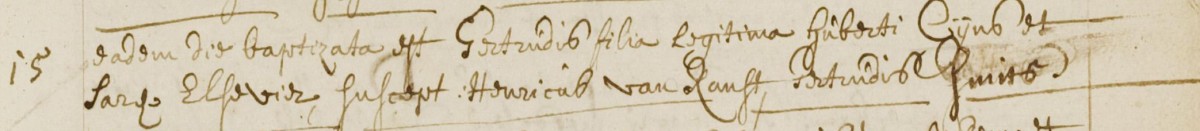 15 eadem die baptizata est Gertrudis filia legitima Huberti Cijns et
Saræ Elsevier, suscept: Henricus van Ranst, Gertrudis Smits.